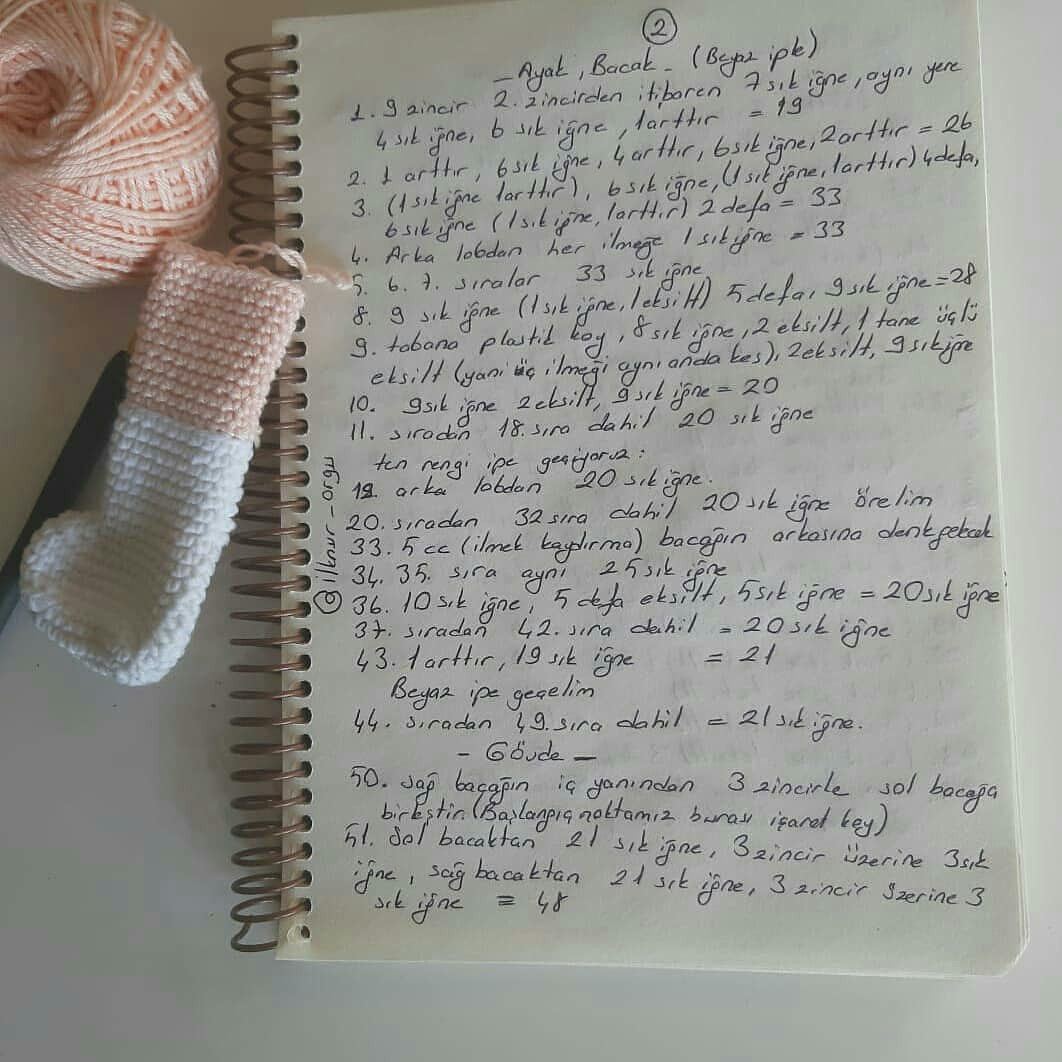 2
- Ayak, Bacak - (Beyaz iple)
1. 9 zincir 2. zincirden itibaren 7 sık iğne, aynı yere
4 sık iğne, 6 sık iğne, 1arttır = 19
2. 1 arttır, 6 sık iğne, 4 arttır, 6 sık iğne, 2 arttır = 26
3. (1 sık iğne 1arttır), 6 sık iğne, (1 sık iğne, 1arttır) 4 defa,
6 sık iğne (1 sık iğne, 1arttır) 2 defa = 33
4. Arka lobdan her ilmeğe 1 sık iğne = 33
5. 6. 7. sıralar 33 sık iğne
8. 9 sık iğne (1 sık iğne, 1 eksilt) 5 defa, 9 sık iğne = 28
9. tabana plastik koy, 8 sık iğne, 2 eksilt, 1 tane üçlü
eksilt (yani üç ilmeği aynı anda kes), 2 eksilt, 9 sık iğne
10. 9 sık iğne 2 eksilt, 9 sık iğne = 20
11. sıradan 18. sıra dahil 20 sık iğne
ten rengi ipe geçiyoruz :
19. arka lobdan 20 sık iğne.
20. sıradan 32 sıra dahil 20 sık iğne örelim
33. 5 cc (ilmek kaydırma) bacağın arkasına denk gelecek
34. 35. sıra aynı 25 sık iğne
36. 10 sık iğne, 5 defa eksilt, 5 sık iğne = 20 sık iğne
37. sıradan 42. sıra dahil = 20 sık iğne
43. 1 arttır, 19 sık iğne = 21
Beyaz ipe geçelim
44. sıradan 49. sıra dahil = 21 sık iğne.
- Gövde -
50. sağ bacağın iç yanından 3 zincirle sol bacağa
birleştir. (Başlangıç noktamız burası işaret koy)
51. Sol bacaktan 21 sık iğne, 3 zincir üzerine 3 sık
iğne, sağ bacaktan 21 sık iğne, 3 zincir üzerine 3
sık iğne = 48
@ilknur_orgu